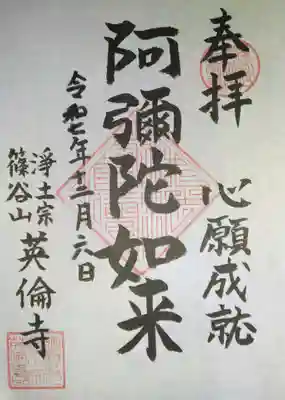 奉拝 心願成就
阿彌陀如来
令和七年十二月六日
浄土宗
篠谷山
英倫寺